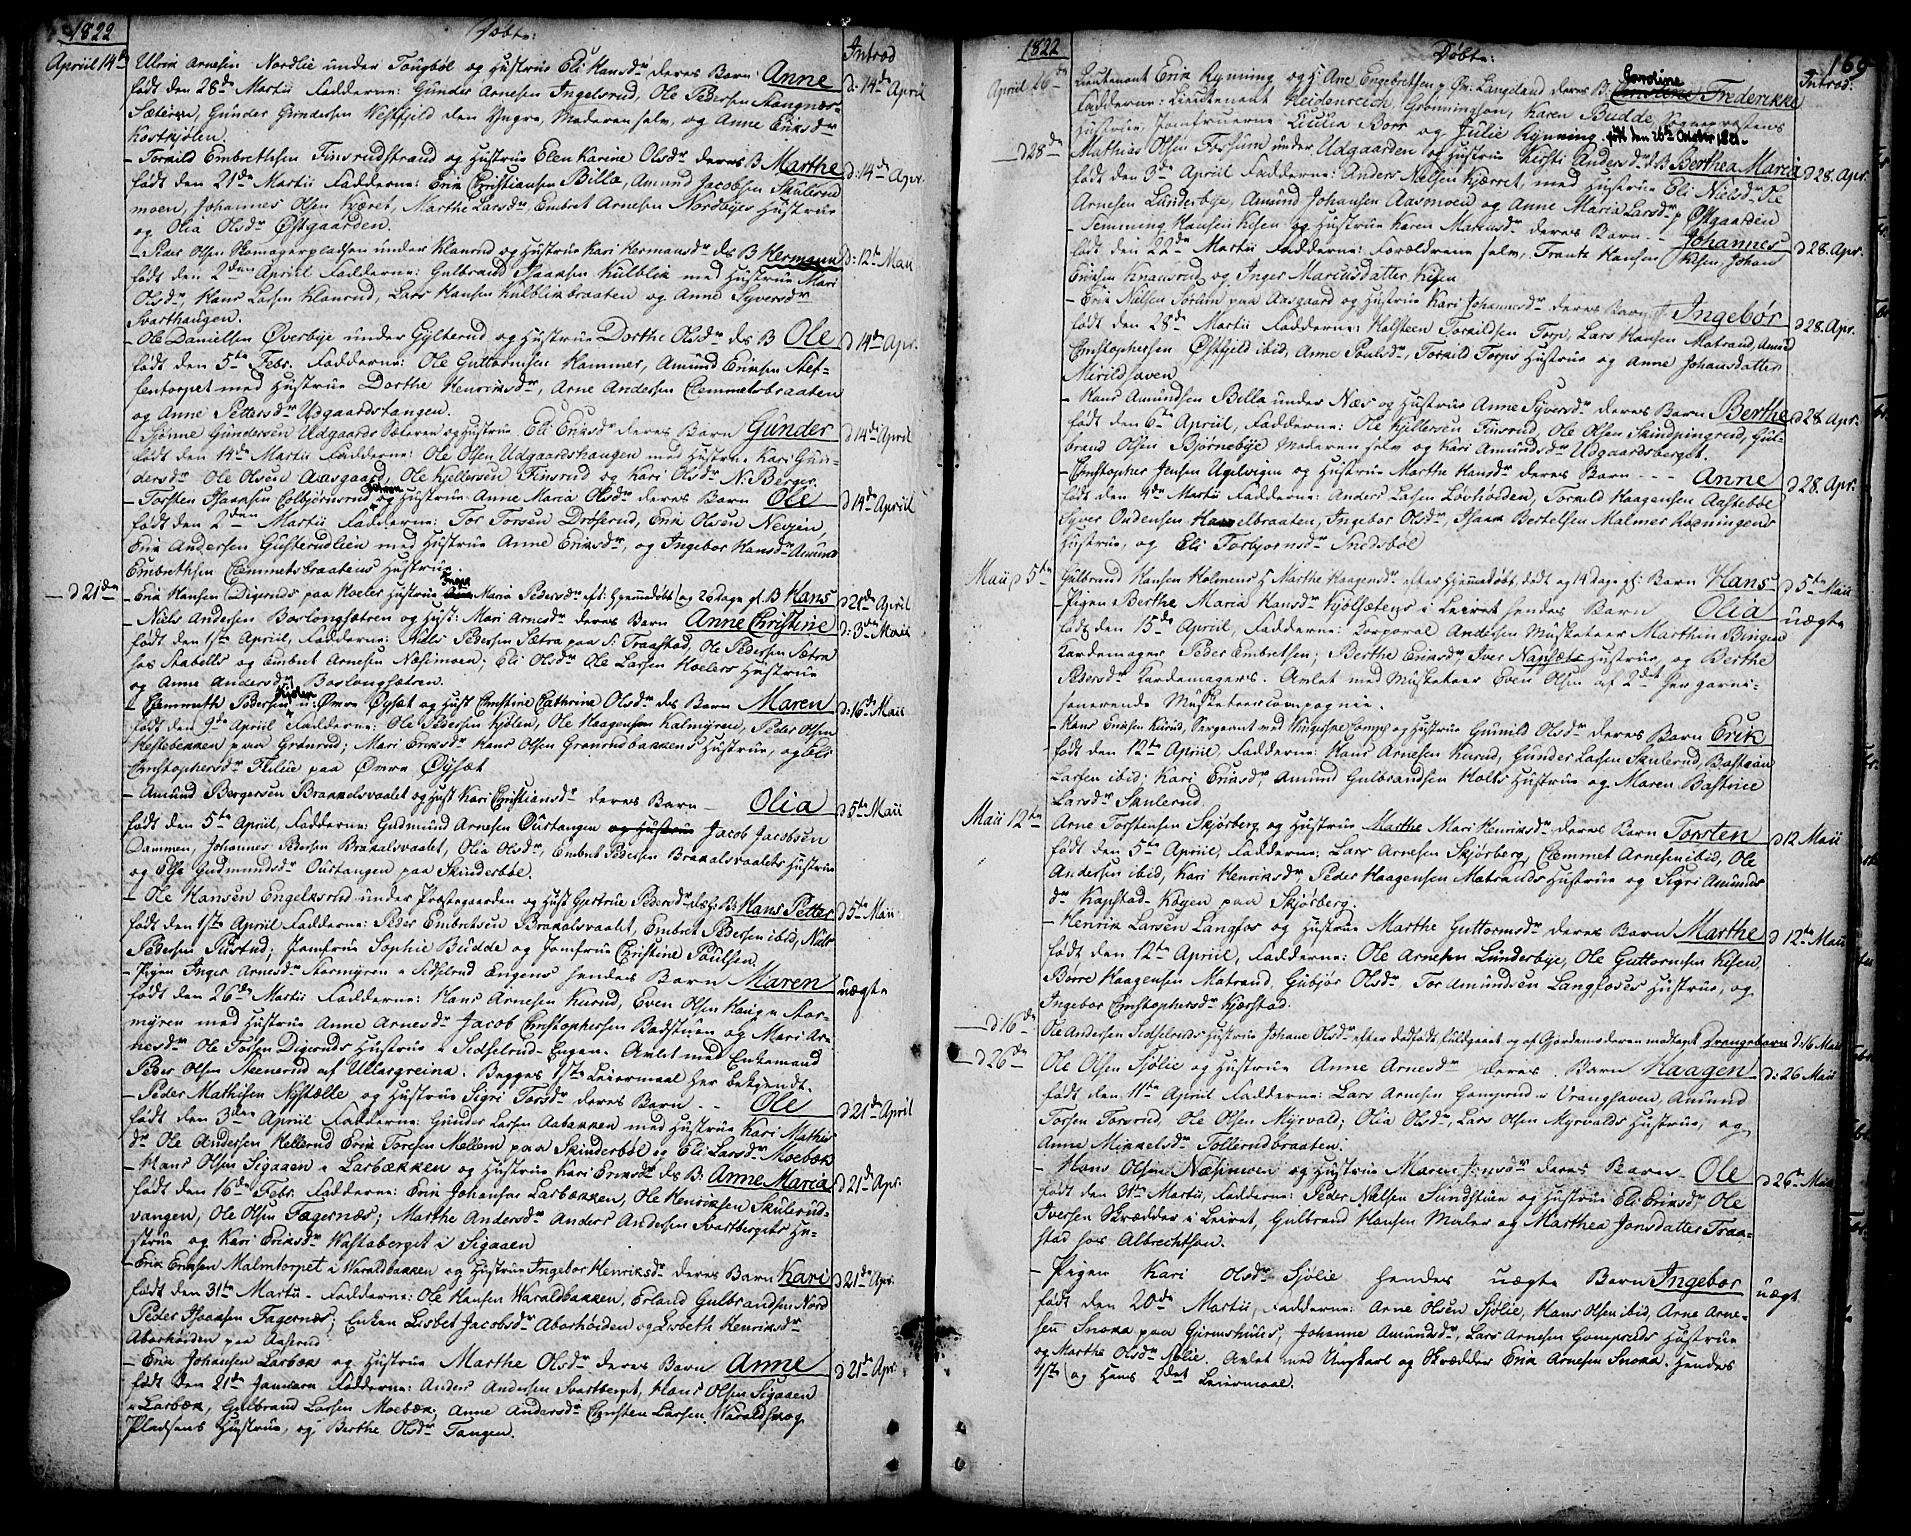 1822 Døbte: Introd
Apriil 14de Ulrik Arnesen Nordlie under Tougbøl og Hustrue Eli Hansdr deres Barn Anne d. 14de April
født den 28de Martii Fadderne: Gunder Arnesen Ingelsrud, Ole Pedersen Stangnæs-
Sæteren, Gunder Gundersen Vestfjeld den Yngre, Moderen selv, og Anne Eriksdr
Kostkjølen.
- Torkild Embrethsen Finsrudstrand og Hustrue Elen Karine Olsdr deres B Marthe d. 14de Apr.
født den 21de Martii Fadderne: Erik Christiansen Billa, Amund Jacobsen Skulerud
moen, Johannes Olsen Kjæret, Marthe Larsdr, Embret Arnesen Nordbyes Hustrue
og Olia Olsdr Østgaarden.
- Peder Olsen Skomagerpladsen under Klanrud og Hustrue Kari Hermansdr ds B Hermann d: 12te Maii
født den 2den Apriil Fadderne: Gulbrand Isaaksen Kulblik med Hustrue Mari
Olsdr, Hans Larsen Klanrud, Lars Hansen Kulblikbraaten og Anne Syversdr
Svarthaugen.
- Ole Danielsen Øverbye under Gylterud og Hustrue Dorthe Olsdr ds B Ole d 14de Apr.
født den 5te Febr. Fadderne: Ole Guttormsen Hammer, Amund Eriksen Stef-
fentorpet med Hustrue Dorthe Henriksdr, Arne Andersen Clemmetsbraaten
og Anne Pettersdr Udgaardstangen.
- Sjønne Gundersen Udgaards Sæteren og Hustrue Eli Eriksdr deres Barn Gunder d 14de April
født den 14de Martii Fadderne: Ole Olsen Udgaardshaugen med Hustrue Kari Gun-
dersdr Ole Olsen Aasgaard, Ole Kjellersen Finsrud og Kari Olsdr N: Berger.
- Torsten Isaaksen Colbjørnsrud og Hustrue Anne Maria Olsdr deres Barn Ole d 14de Apriil
født den 2den Martii Fadderne: Tor Torsen Drøserud, Erik Olsen Nevjen,
Erik Andersen Gusterudlien med Hustrue Anne Eriksdr, og Ingebor Hansdr Amund
Embrethsen Clemmetsbraatens Hustrue.
- d 21de - Erik Hansen Digerud paa Hoeler Hustrue Inger Maria Pedersdr eft: Hjemmedøbt og 26 dage gl. B Hans d 21de April
- Niels Andersen Boslongsætren og Hust: Mari Arnesdr deres Barn Anne Christine d: 3de Maii
født den 1ste April, Fadderne: Niels Pedersen Sætra paa S: Traastad, Ole Pedersen Sætra
hos Stabells og Embret Arnesen Næsimoen; Eli Olsdr Ole Larsen Hoelers Hustrue
og Anne Andersdr Boslongsætren.
- Hjemmuth Pedersen Kjølen u: Ømre Øysæt og Hust Christine Cathrine Olsdr ds Barn Maren d: 16de Maii
født den 9de Apriil Fadderne: Ole Pedersen Kjølen, Ole Haagensen Kalmyren, Peder Olsen
Hestebekken paa Grønrud; Mari Eriksdr Hans Olsen Grønrudbakkens Hustrue, og Eli
Christophersdr Fulie paa Ømre Øysæt
- Amund Bergersen Brakalsvaalet og Hust Kari Christiansdr deres Barn - Olia d 5te Maii
født den 5te Apriil, Fadderne: Gudmund Arnesen Oustangen og Hustrue Jacob Jacobsen
Dammen, Johannes Pedersen Brakalsvaalet, Olia Olsdr, Embret Pedersen Brakalsvaalets Hustrue
og Else Gudmundsdr Oustangen paa Skinderbøl.
- Ole Hansen Engelksrud under Præstegaarden og Hust Gertrue Pedersdr ds B: Hans Petter d 5te Maii
født den 1ste April Fadderne: Peder Embretsen Brakalsvaalet, Embret Pedersen ibid, Niels
Pedersen Tusrud; Jomfrue Sophie Budde og Jomfrue Christine Poulsen.
- Pigen Inger Arnesdr Stormyren i Sidselrud Engens hendes Barn Maren uægte
født den 26de Martii Fadderne: Hans Arnesen Kurud, Even Olsen Haug u Stor-
myren med Hustrue Anne Arnesdr Jacob Christophersen Badstuen og Mari Ar-
nesdr Ole Torsen Digeruds Hustrue i Sidselrud-Engen. Avlet med Enkemand
Peder Olsen Steenerud af Ullargreina. Begges 1ste Leiermaal her bekjendt.
- Peder Mathisen Nystælle og Hustrue Sigri Torsdr deres Barn - - Ole d 21de April
født den 3den April Fadderne: Gunder Larsen Aabakken med Hustrue Kari Mathis
dr Ole Andersen Kellerud Erik Toresen Mellem paa Skinderbøl og Eli Larsdr Moebæk
- Hans Olsen Sigaaen i Larbækken og Hustrue Kari Eriksdr ds B: Anne Maria d 21de Apr.
født den 16de Febr Fadderne: Erik Johansen Larbækken, Ole Henriksen Skulerud-
vangen, Ole Olsen Fagernæs; Marthe Andersdr Anders Andersen Svartbergets Hu-
strue og Kari Eriksdr Wastaberget i Sigaaen
- Erik Eriksen Malmtorpet i Waraldbakken og Hustrue Ingebor Henriksdr deres Barn Kari d 21de Apr:
født den 31te Martii - Fadderne: Ole Hansen Waraldbakken, Erland Gulbrandsen Nord
Peder Isaaksen Fagernæs; Enken Lisbet Jacobsdr Aborhøiden og Lisbeth Henriksdr
Aborhøiden paa Aaserud
- Erik Johansen Larbæk og Hustrue Marthe Olsdr deres Barn Anne d 21de Apr:
født den 21de Januarii Fadderne: Anders Andersen Svartberget, Hans Olsen Sigaaen
i Larbæk, Gulbrand Larsen Moebæk, Anne Andersdr Christen Larsen Waraldskog
Pladsens Hustrue, og Berthe Olsdr Tangen.
1822 Døbte: 169
Introd:
April 26de Lieutenant Erik Rynning og H: Ane Engebretsen p Øv: Langeland deres B. Caroline Frederikke
Fadderne: Lieutenant Heidenreich, Grønningson, Karen Budde, Sogneprestens
Hustrue, Jomfruerne Licilia Borr og Julie Rynning. født den 26de October 1821.
- d 28de Mathias Olsen Forsum under Udgaarden og Hustrue Kirsti Andersdr d: B Berthea Maria d 28. Apr.
født den 3de Apriil Fadderne: Anders Nielsen Kjærret, med Hustrue Eli Nielsdr Ole
Arnesen Lunderbye, Amund Johansen Aasmoen og Anne Maria Larsdr p Østgaarden
- Femming Hansen Kisen og Hustrue Karen Mariusdr deres Barn - Johannes d 28. Apr.
født den 22de Martii Fadderne: Forældrene selv, Frantz Hansen Kisen, Johan
Eriksen Knansrud og Inger Mariusdatter Kisen
- Erik Nielsen Sørlund paa Aasgaard og Hustrue Kari Johannesdr deres Barn Ingebor d 28. Apr.
født den 28de Martii Fadderne: Halsteen Torkildsen Torp, Lars Hansen Matrand, Amund
Christophersen Østfjeld ibid, Anne Poulsdr, Torkild Torps Hustrue og Anne Johansdatter
Mirildhaven
- Hans Amundsen Billa under Næs og Hustrue Anne Syversdr deres Barn Berthe d 28 Apr.
født den 6te Apriil, Fadderne: Ole Kjellersen Finsrud, Ole Olsen Skindpingrud, Gul-
brand Olsen Bjørnebye Moderen selv og Kari Amundsdr Udgaardsberget.
- Christopher Jensen Ugelvigen og Hustrue Marthe Hansdr deres Barn - - - Anne d 28. Apr.
født den 4de Martii Fadderne: Anders Larsen Løvhøiden, Torkild Haagensen Aastebøl
Syver Oudensen Hammelbraaten, Ingebor Olsdr, Isaak Bertelsen Malmer Løsningens
Hustrue, og Eli Torbjørnsdr Snedsbøl
Maii d 5te Gulbrand Hansen Holmens H Marthe Haagensdr efter Hjemmedøbt, født og 14 dage gl: Barn Hans d 5te Maii
- Pigen Berthe Maria Hansdr Kjølsætens i Leiret hendes Barn Olia uægte
født den 15de Apriil, Fadderne: Korporal Andersen Musketeer Marthin Bingen
Kardemager Peder Embretsen; Berthe Eriksdr, Iver Næpsæts Hustrue, og Berthe
Pedersdr Kardemagers. Avlet med Musketeer Even Olsen af 2det her garni-
sonerende Musketeercompagnie.
- Hans Eriksen Kurud, Sergeant ved Vingerske Comp og Hustrue Gunild Olsdr deres Barn Erik
født den 12te Apriil, Fadderne: Hans Arnesen Kurud, Gunder Larsen Skulerud, Bastian
Larsen ibid; Kari Eriksdr, Amund Gulbrandsen Holts Hustrue og Maren Bastrine
Larsdr Skulerud.
Maii 12te Arne Torstensen Skjørberg og Hustrue Marthe Mari Henriksdr deres Barn Torsten d 12 Maii
født den 5te Apriil, Fadderne: Lars Arnesen Skjørberg, Clemmet Arnesen ibid, Ole
Andersen ibid, Kari Henriksdr, Peder Haagensen Matrands Hustrue og Sigri Amunds
dr Kapstad-Køyen paa Skjørberg.
- Henrik Larsen Langfos og Hustrue Marthe Guttormsdr deres Barn Marthe d 12te Maii
født den 12te Apriil, Fadderne: Ole Arnesen Lunderbye, Ole Guttormsen Kisen,
Borre Haagensen Matrand, Gubjør Olsdr, Tor Amundsen Langfoses Hustrue, og
Ingebor Christophersdr Kjærstad.
- d 16de Ole Andersen Sidselruds Hustrue Johane Olsdr efter dødfødt, fuldgaaet og af Gjordemoderen modtaget Drengebarn d: 16 Maii
- d 26de Ole Olsen Sjølie og Hustrue Anne Arnesdr deres Barn Haagen d: 26 Maii
født den 11te April Fadderne: Lars Arnesen Gomsrud i Vranghaven, Amund
Torsen Torsrud, Ole Olsen Myrvald; Olia Olsdr, Lars Olsen Myrvalds Hustrue, og
Anne Mikkelsdr Tollerudbraaten.
- Hans Olsen Næsimoen og Hustrue Maren Jensdr deres Barn - Ole d 26te Maii
født den 31te Martii, Fadderne: Peder Nielsen Sundstuen og Hustrue Eli Eriksdr, Ole
Iversen Skrædder i Leiret, Gulbrand Hansen Maler og Marthea Jonsdatter Traa-
stad hos Albrechtson.
- Pigen Kari Olsdr Sjølie hendes uægte Barn Ingebor uægt
født den 20de Martii, Fadderne: Arne Olsen Sjølie, Hans Olsen ibid, Arne Arne-
sen Snoka paa Girmshuus, Johanne Amundsdr, Lars Arnesen Gomsruds Hustrue
og Marthe Olsdr Sjølie. Avlet med Ungkarl og Skrædder Erik Arnesen Snoka. Hendes
4de og Hans 2det Leiermaal.